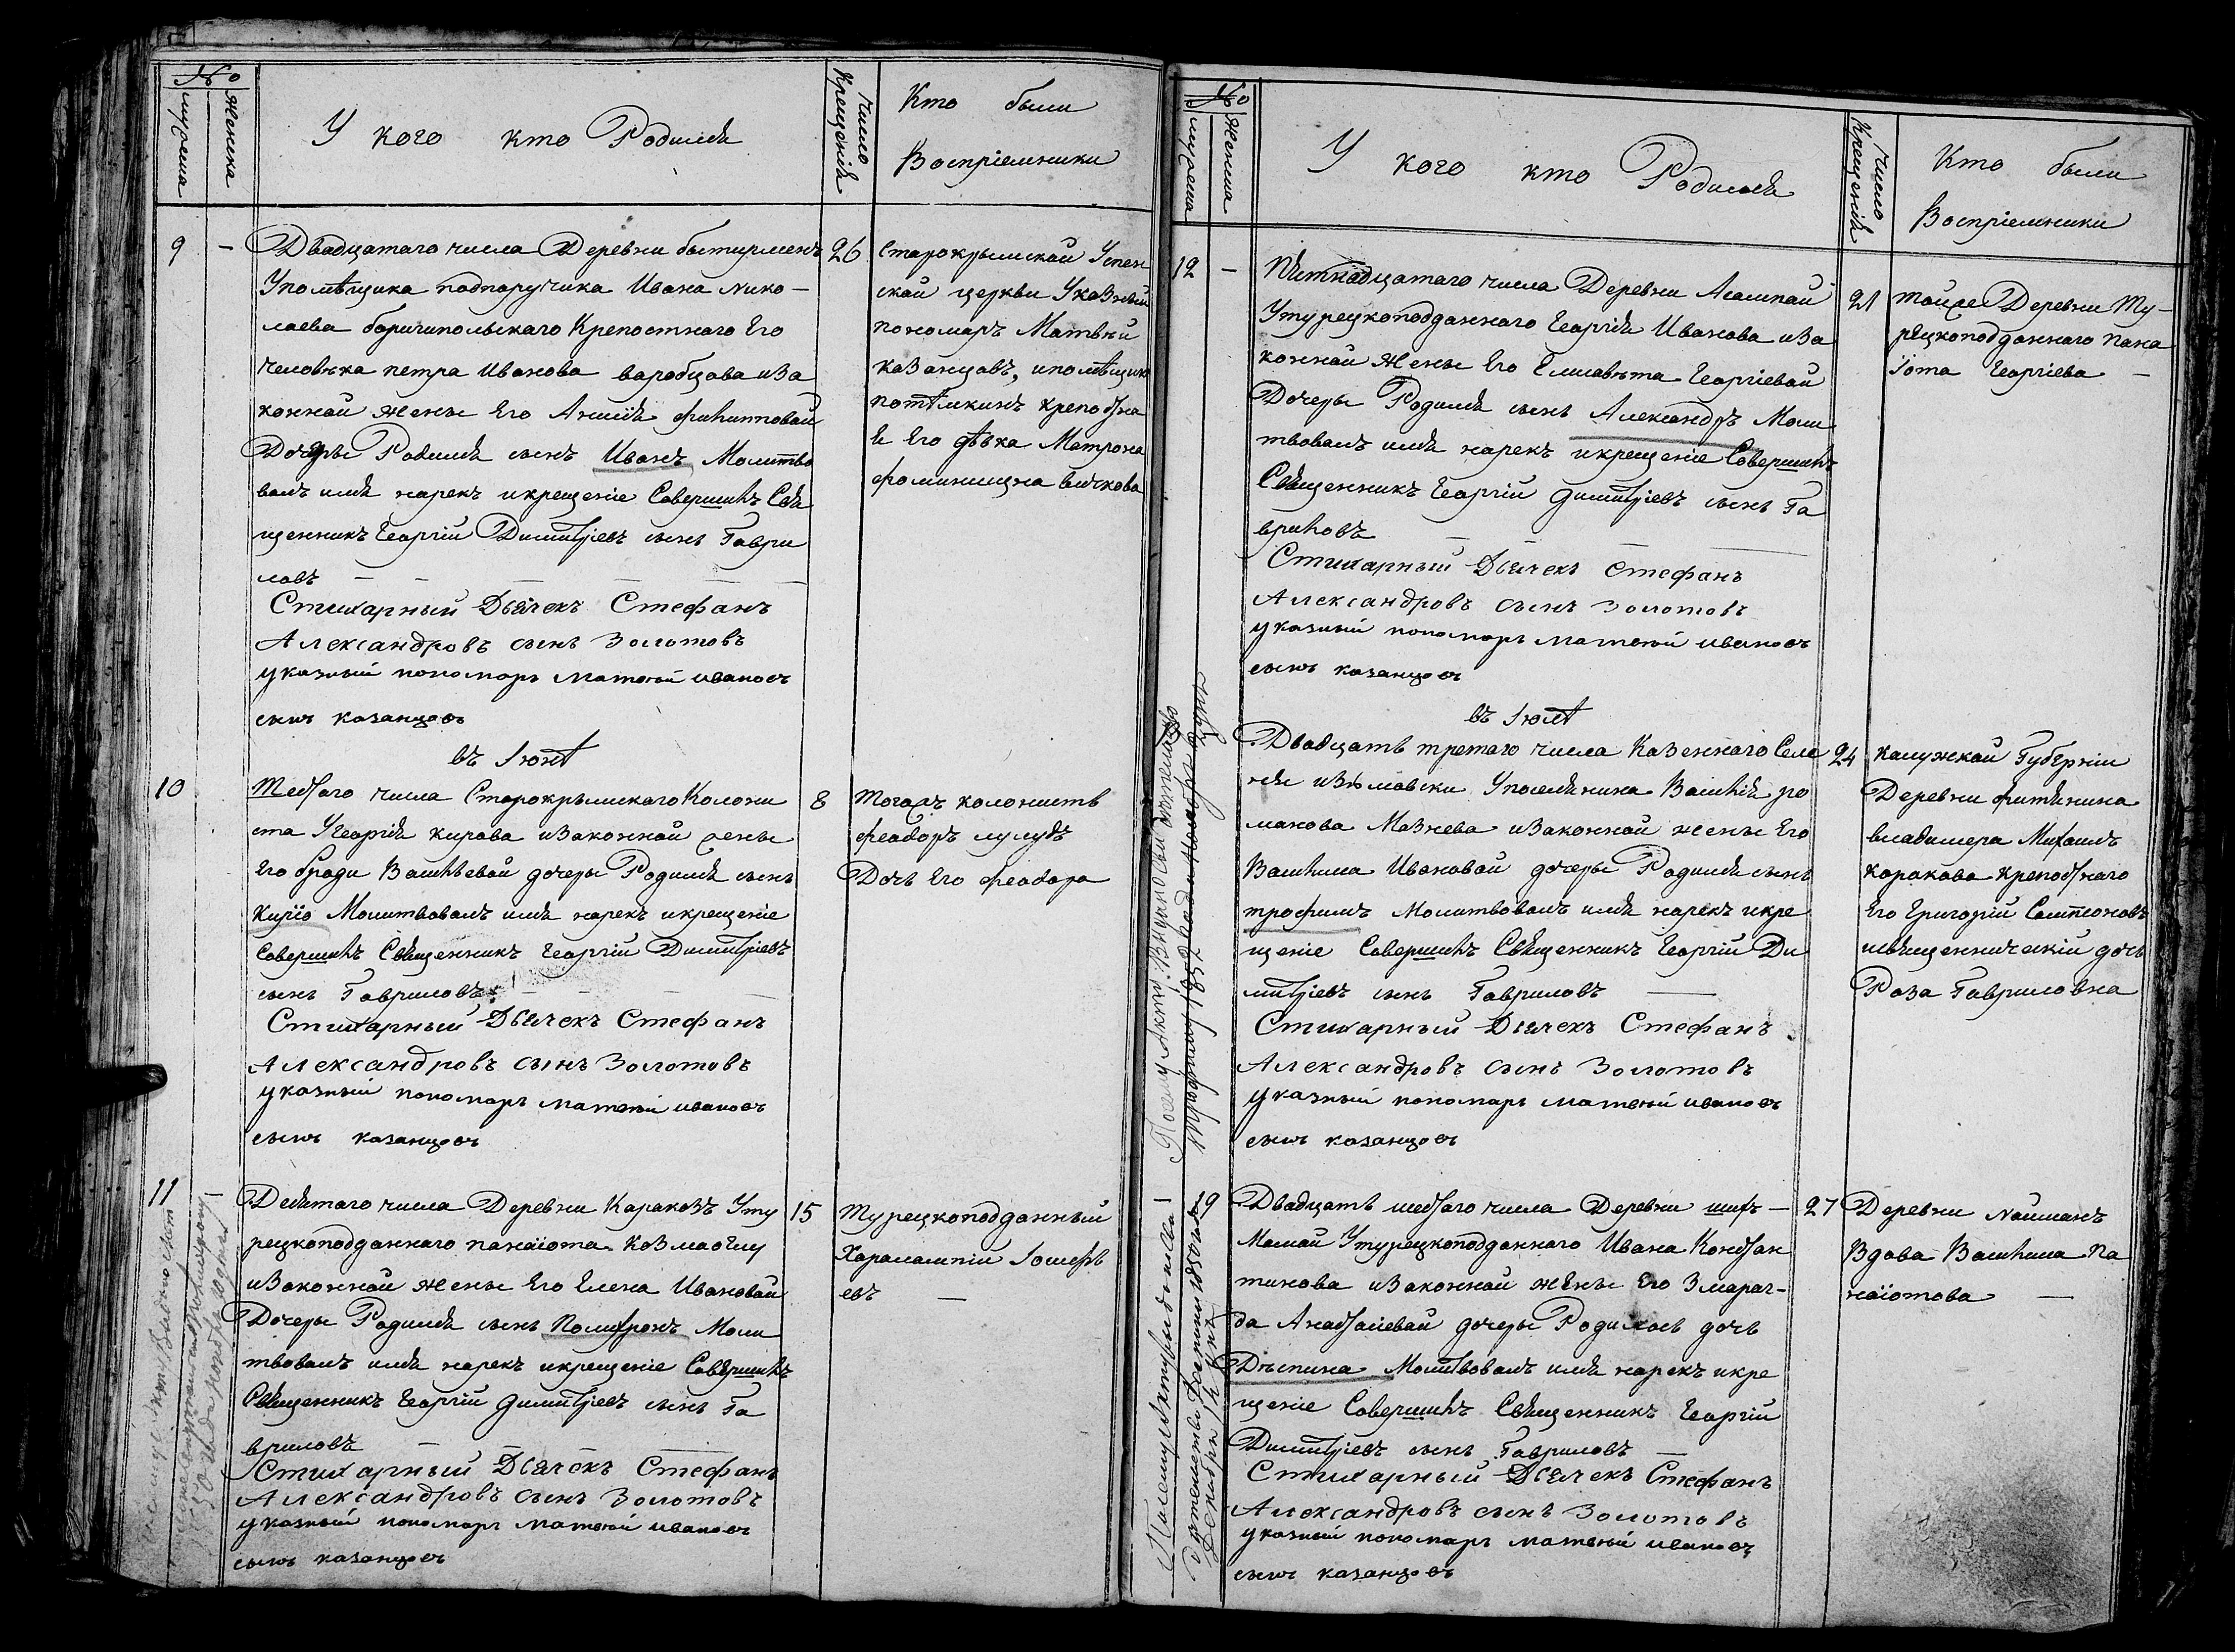 №
мужеска
женска
У кого кто Родился
Число
Крещенія
Кто были
Воспріемники
9 —
Двадцатаго числа Деревни
Упомѣщика подпоручика Ивана Нико-
лаева боричипольскаго Крепостнаго Его
Человѣка петра Иванова варобцова иза
конной жены Его Анисіи филиповой
Дочеры Родился сынъ Иванъ Молитво
валъ имя нарекъ икрещеніе Совершилъ Свя
щенникъ Георгій Димитріевъ сынъ Гаври
ловъ
Стихарный Дьячекъ Стефанъ
Александровъ сынъ Золотовъ
указный пономарь матвей ивановъ
сынъ казанцовъ
26
Старокрымской Успен
ской церкви Указный
пономаръ Матвѣй
Казанцовъ, ипомѣщика
потѣмкинъ крепостна
я Его дѣвка Матрона
фоминишна
въ Іюнѣ
10
Шестаго числа Старокрымскаго Колони
ста Угеоргія кирова изаконной жены
Его Васильевой дочеры Родился сынъ
Молитвовалъ имя нарекъ икрещеніе
Совершилъ Священникъ Георгій Димитріевъ
сынъ Гавриловъ
Стихарный Дьячекъ Стефанъ
Александровъ сынъ Золотовъ
указный пономарь матвей ивановъ
сынъ казанцовъ
8
Тогожъ колонистъ
феодоръ
Дочь Его феодора
11 —
Девятаго числа Деревни Каракозъ Уту
рецкоподданнаго панаіота Козмаоглу
изаконной жены Его Елена Ивановой
Дочеры Родился сынъ Полихронъ Моли
твовалъ имя нарекъ икрещеніе Совершилъ
Священникъ Георгій Димитріевъ сынъ Га
вриловъ
Стихарный Дьячекъ Стефанъ
Александровъ сынъ Золотовъ
указный пономарь матвей ивановъ
сынъ казанцовъ
15
Турецкоподданный
Харалампій
евъ
№
мужеска
женска
У кого кто Родился
Число
Крещенія
Кто были
Воспріемники
12 —
Пятнадцатаго числа Деревни
Утурецкоподданнаго Георгія Иванова иза
конной жены Его Елисавета Георгіевой
Дочеры Родился сынъ Александръ Моли
твовалъ имя нарекъ икрещеніе Совершилъ
Священникъ Георгій Димитріевъ сынъ Га
вриловъ
Стихарный Дьячекъ Стефанъ
Александровъ сынъ Золотовъ
указный пономарь матвей ивановъ
сынъ казанцовъ
21
тойже Деревни Ту-
рецкоподданнаго Пана
іота Георгіева
въ Іюлѣ
Двадцать третаго числа Казеннаго Селе
нія изюмовски Упоселянина Василія ро
манова Мазнева изаконной жены Его
Василиса Ивановой дочеры Родился сынъ
трофимъ Молитвовалъ имя нарекъ икре
щеніе Совершилъ Священникъ Георгій Ди
митріевъ сынъ Гавриловъ
Стихарный Дьячекъ Стефанъ
Александровъ сынъ Золотовъ
указный пономарь матвей ивановъ
сынъ казанцовъ
24
Калужской Губерніи
Деревни
владимера Михаилъ
Каракова крепостнаго
Его Григорій
исвященническій дочь
Роза Гавриловна
19
Двадцать шестаго числа Деревни шихъ-
Мамай Утурецкоподданнаго Ивана Констан
тинова изаконной жены Его Змараг-
да Анастасіевой дочеры Родилась дочь
Дѣспина Молитвовалъ имя нарекъ икре
щеніе Совершилъ Священникъ Георгій
Димитріевъ сынъ Гавриловъ
Стихарный Дьячекъ Стефанъ
Александровъ сынъ Золотовъ
указный пономарь матвей ивановъ
сынъ казанцовъ
27
Деревни Найманъ
Вдова Василиса Па
наіотова